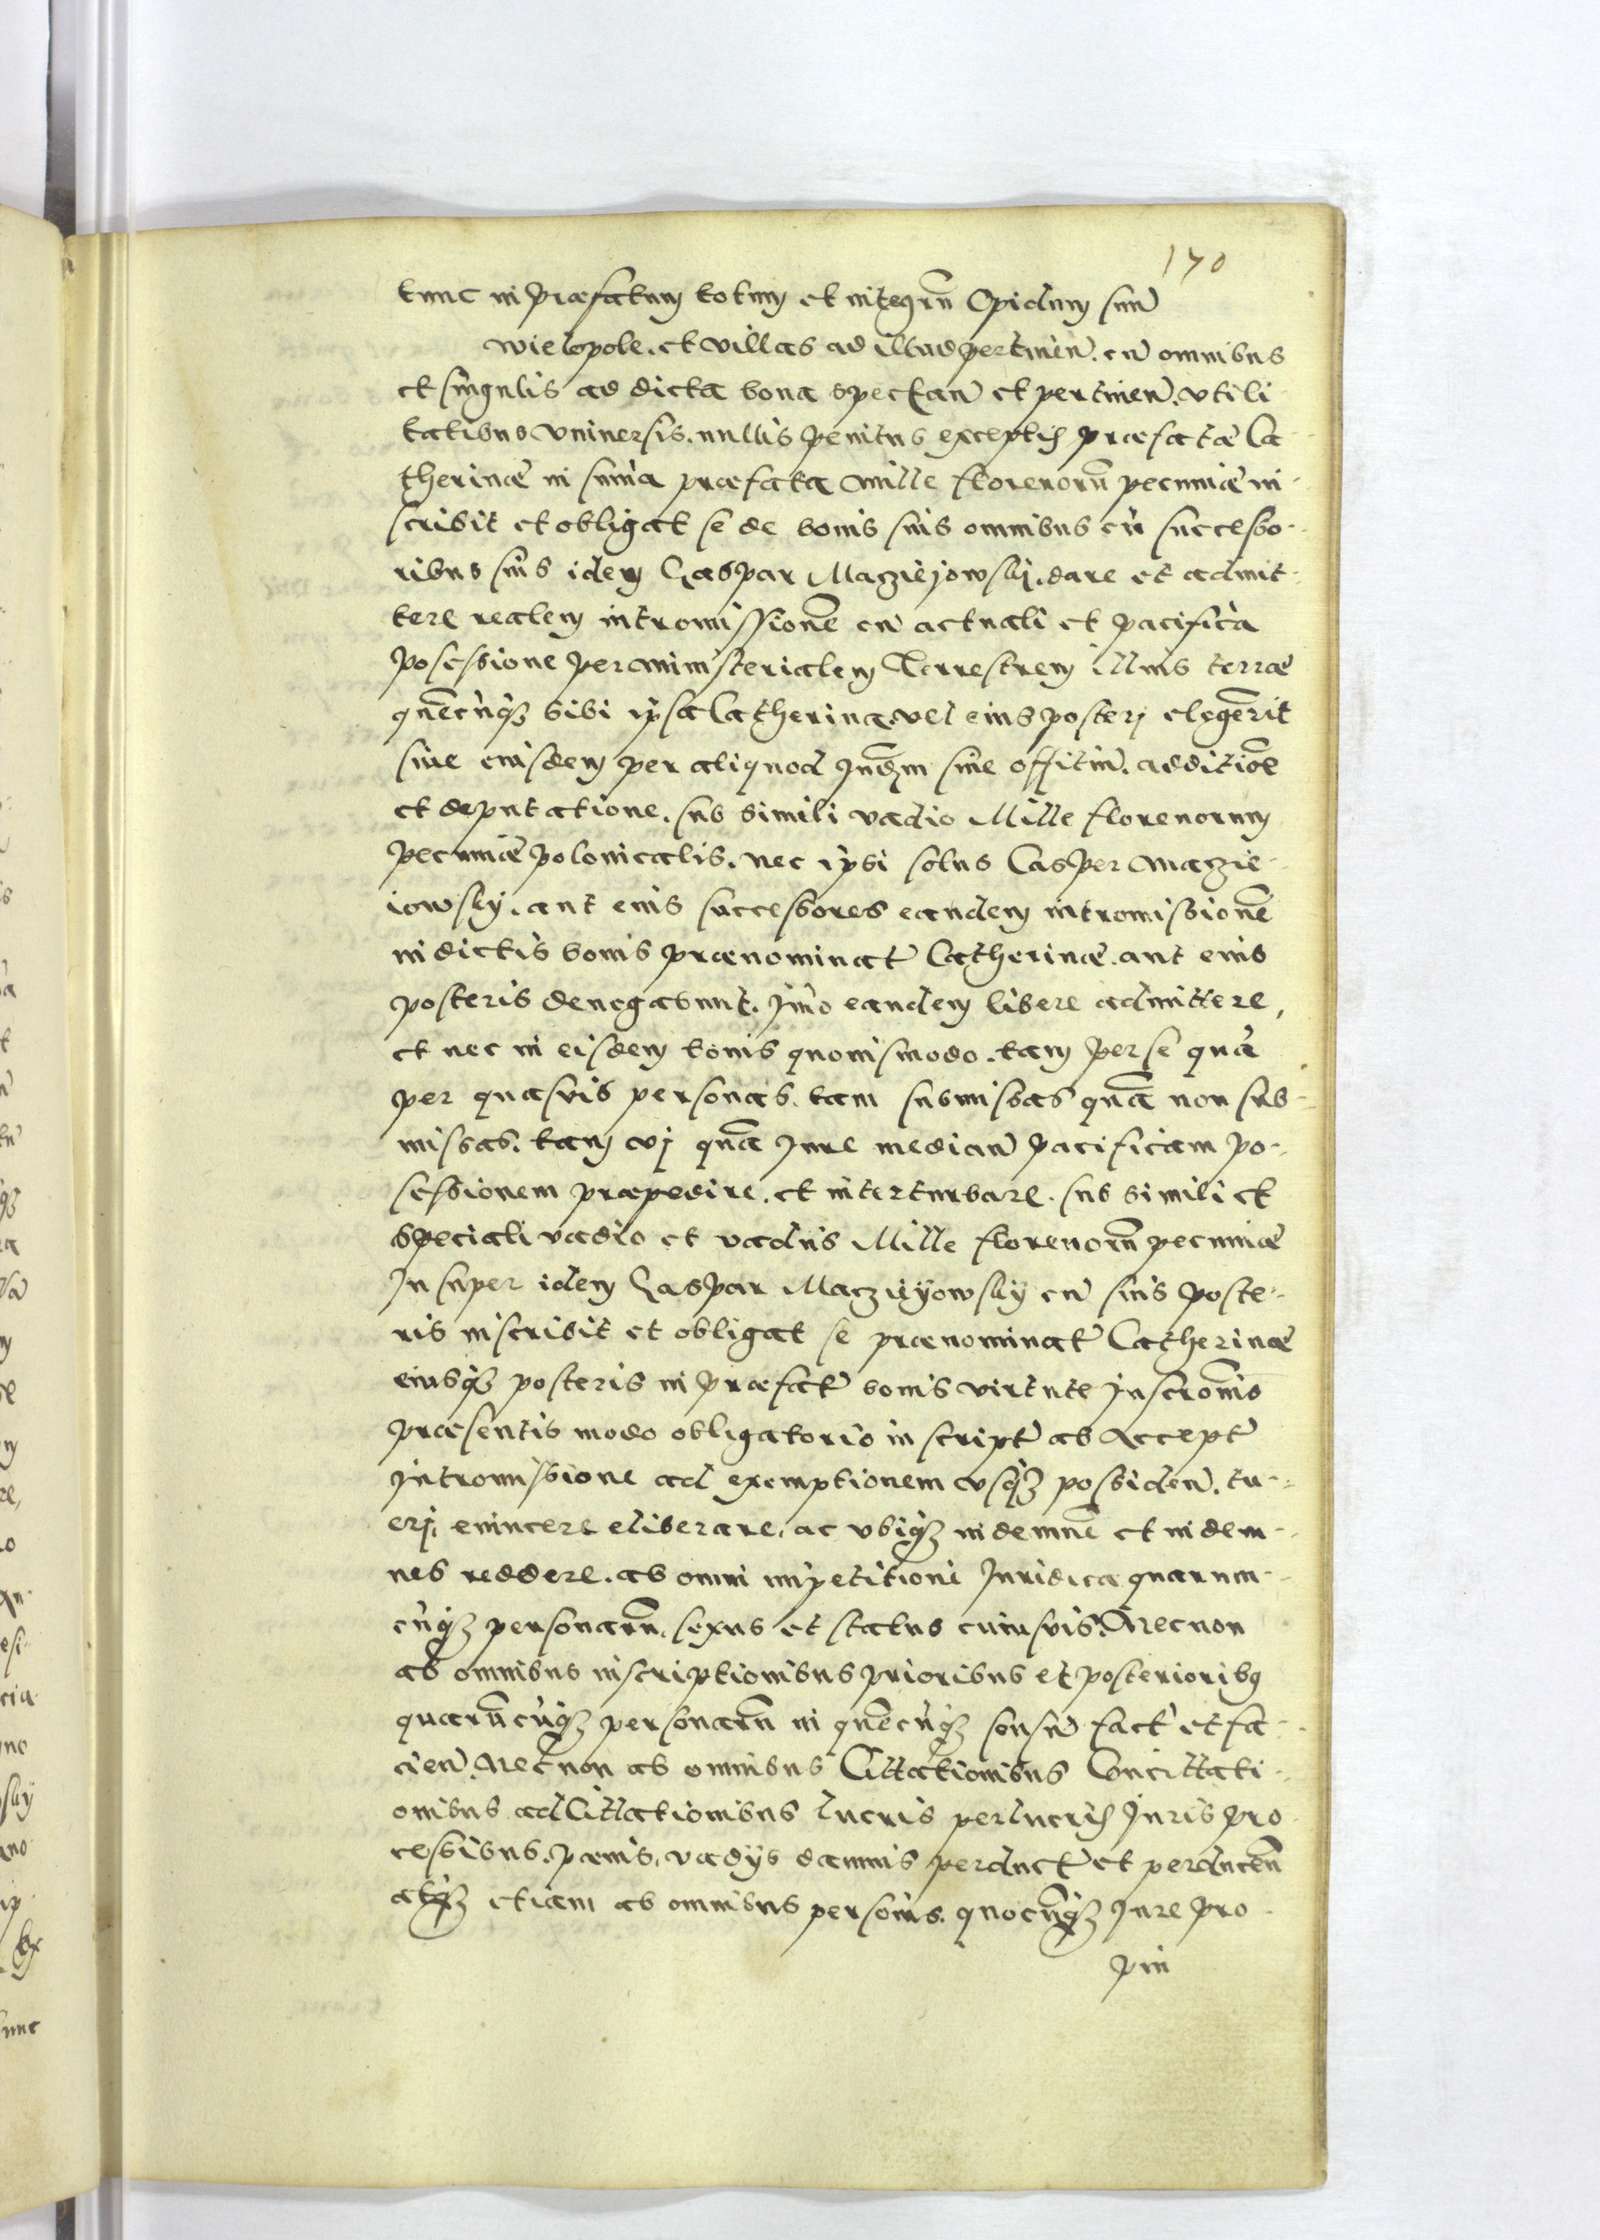 170
tunc in præfatum totum et integrũ Opidum suũ
Wielopole. et villas ad illud pertinen̄. cũ omnibus
et singulis ad dicta bona spectan̄ et pertinen̄. vtili
tatibus vniuersis. nullis penitus exceptis præfatæ Ca
therinæ in suma præfata Mille florenorũ pecuniæ in
scribit et obligat se de bonis suis omnibus cũ successo-
ribus suis idem Caspar Macziejowsky. dare et admit-
tere realem intromissionẽ cũ actuali et pacifica
possessione per ministerialem Terrestrem illius terræ
quẽcũq; sibi ipsa Catherina. vel eius posterj elegerit
siue eiusdem per aliquod Iudm siue offitiũ. additiõe
et deputatione. sub simili vadio Mille florenorum
pecuniæ polonicalis. nec ipsi solus Casper Maczie-
iowsky. aut eius successores eandem intromissionẽ
in dictis bonis prænominat̃ Catherinæ. aut eius
posteris denegabunt. Imo eandem libere admittere,
et nec in eisdem bonis quouismodo. tam per se quã
per quasuis personas. tam submissas quã non sub-
missas. tam vj quã Iure median̄ pacificam po-
sessionem præpedire. et interturbare. sub simili et
speciali vadio et vadiis Mille florenorũ pecuniæ
In super idem Caspar Macziejowsky cũ suis poste-
ris inscribit et obligat se prænominat̃ Catherinæ
eiusq; posteris in præfat̃ bonis virtute Inscronis
præsentis modo obligatorio in script̃ ab Accept̃
Intromissione ad exemptionem vsq; possiden̄. tu-
erj, euincere eliberare, ac vbiq; indemnẽ et indem-
nes reddere. ab omni impetitione Iuridica quarum-
cũq; personarũ. sexus et status cuiusuis. Necnon
ab omnibus inscriptionibus prioribus et posterioribus
quarũcũq; personarũ in quẽcũq; sensũ fact̃ et fa-
cien̄. Necnon ab omnibus Cittationibus Concittati-
onibus adCittationibus lucris perlucris Iuris pro
cessibus. pænis, vadijs damnis perduct̃ et perducen̄
atq; etiam ab omnibus personis. quocũq; Iure pro-
pin